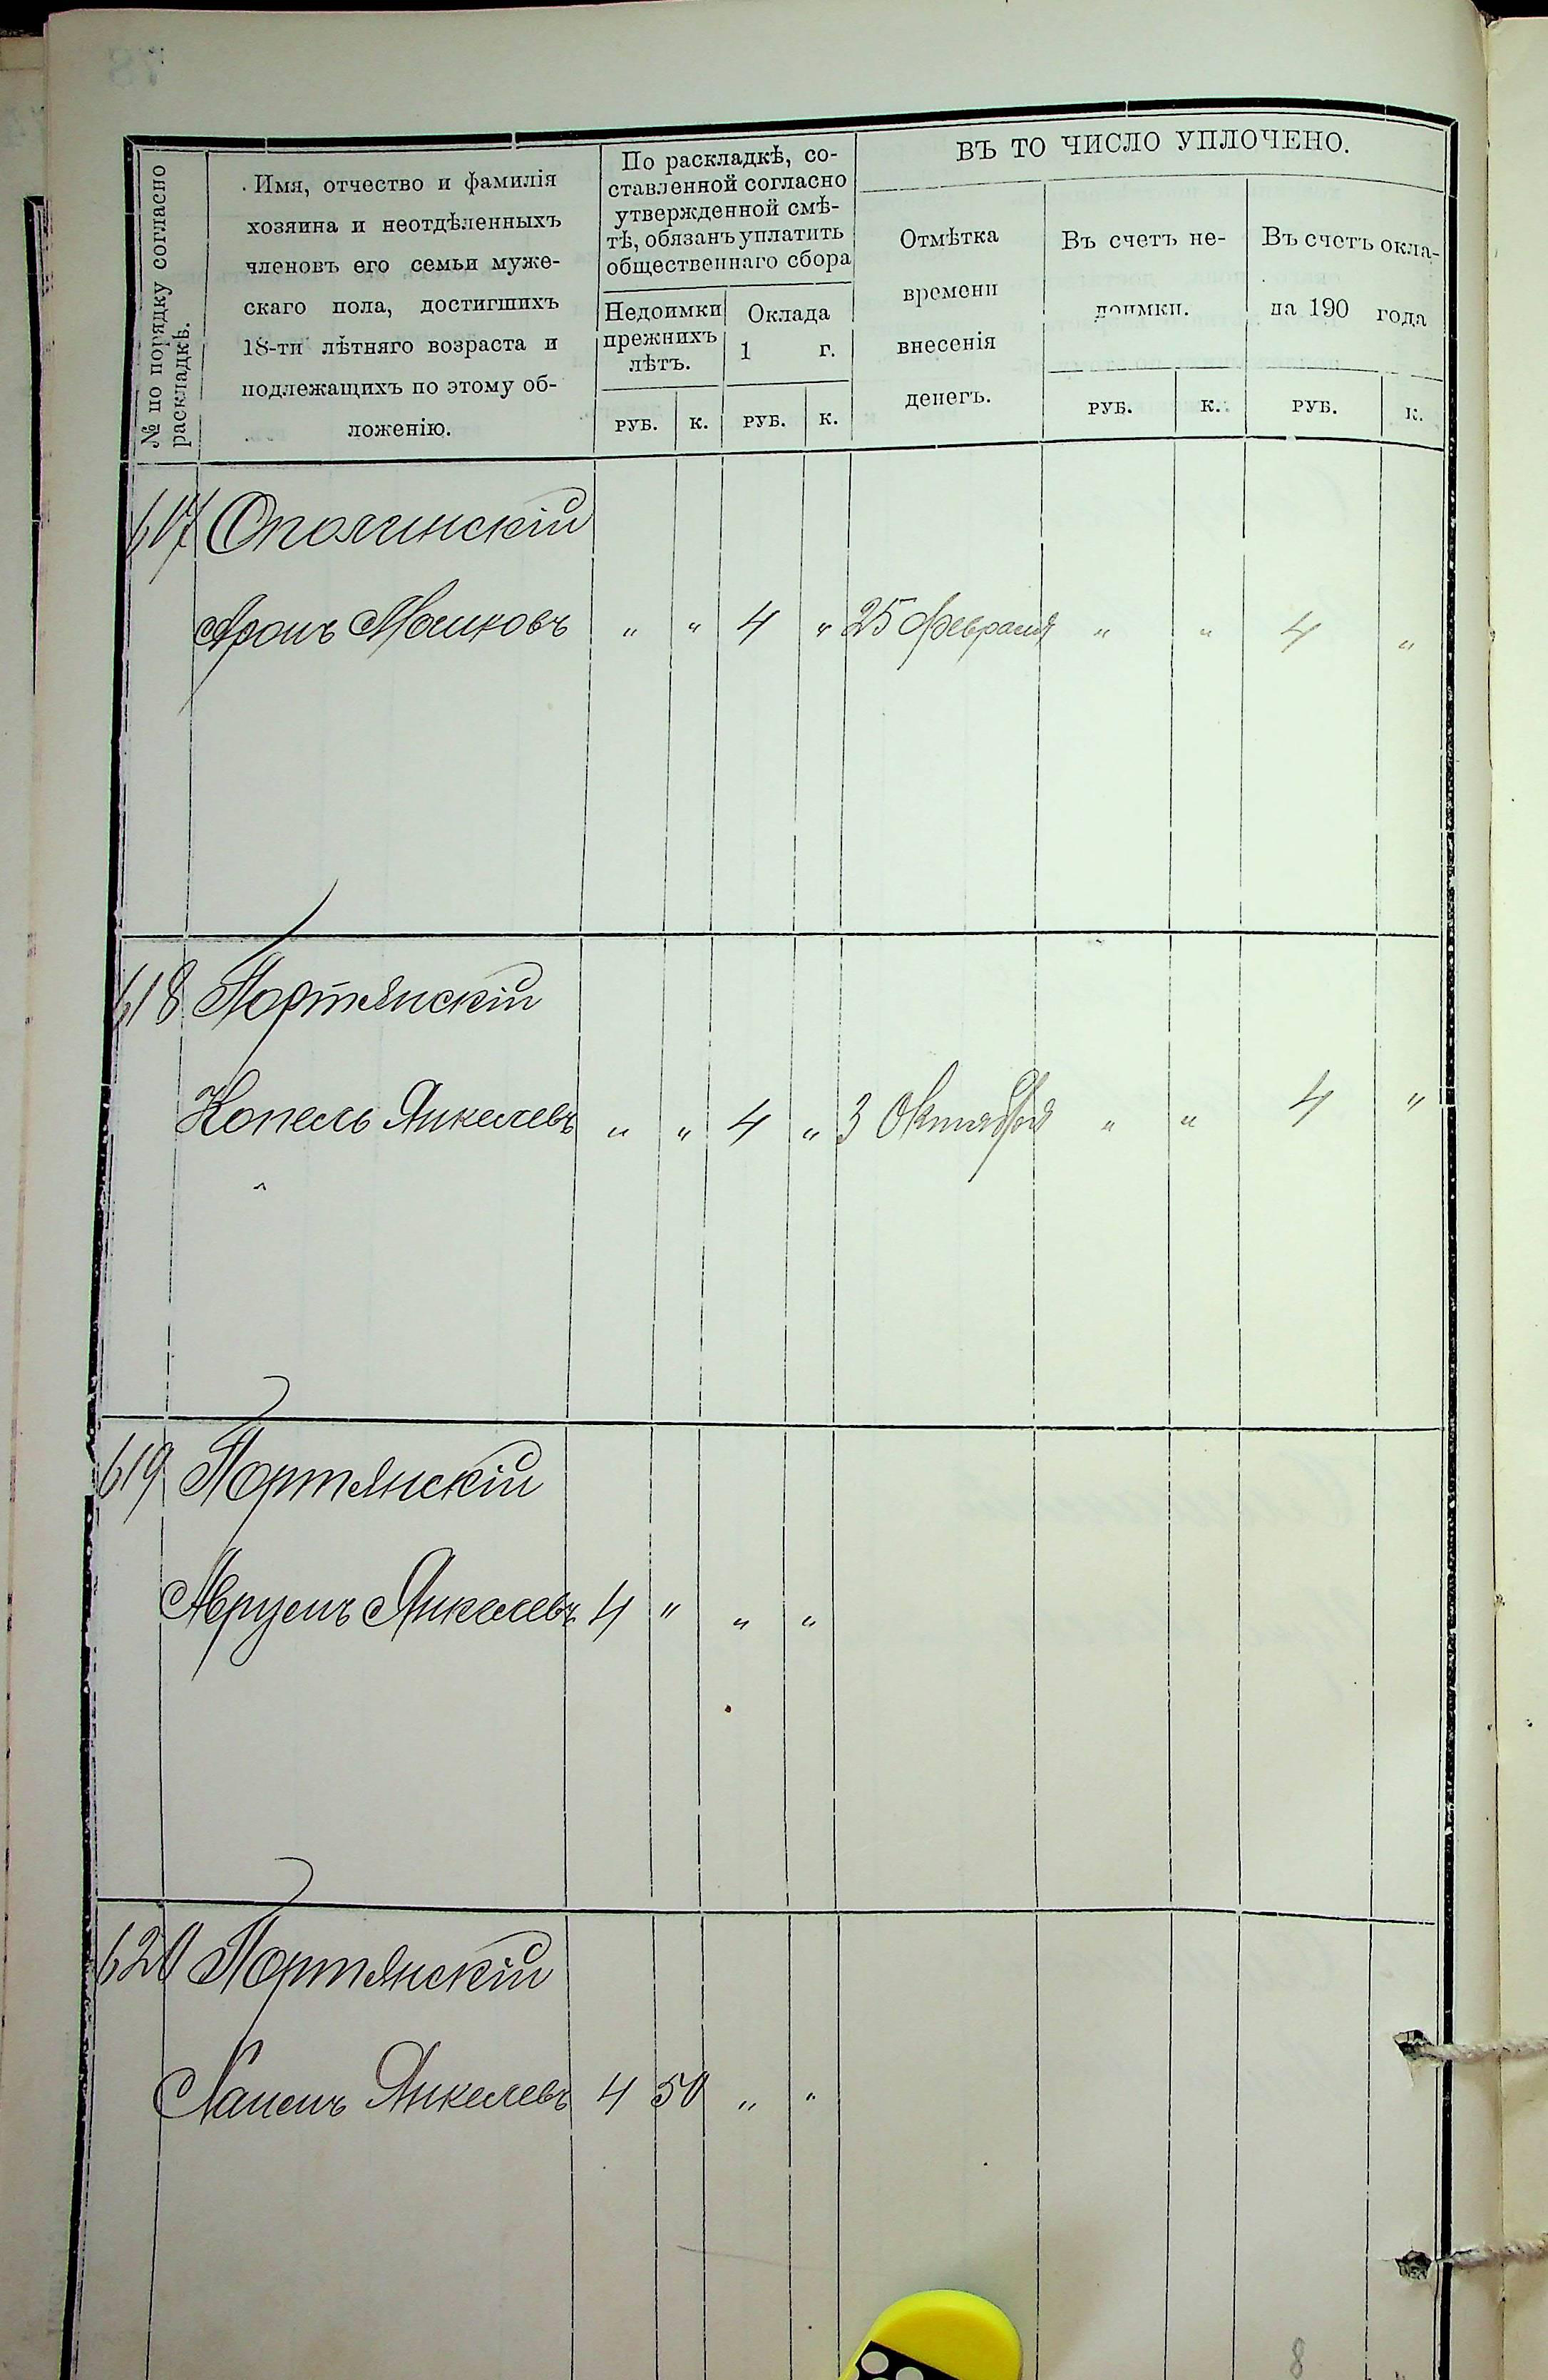 № по порядку согласно раскладкѣ.
Имя, отчество и фамилія
хозяина и неотдѣленныхъ
членовъ его семьи муже-
скаго пола, достигшихъ
18-ти лѣтняго возраста и
подлежащихъ по этому об-
ложенію.
По раскладкѣ, со-
ставленной согласно
утвержденной смѣ-
тѣ, обязанъ уплатить
общественнаго сбора
Недоимки
прежнихъ
лѣтъ.
Оклада
1 г.
РУБ. К. РУБ. К.
ВЪ ТО ЧИСЛО УПЛОЧЕНО.
Отмѣтка
времени
внесенія
денегъ.
Въ счетъ не-
доимки.
РУБ. К.
Въ счетъ окла-
да 190 года
РУБ. К.
617 Опочинскій
Аронъ Мошковъ " " 4 " 25 Февраля " " 4 "
618 Портянскій
Копель Янкелевъ " " 4 " 3 Октября " " 4 "
619 Портянскій
Аврумъ Янкелевъ 4 " " "
620 Портянскій
Янкелевъ 4 50 " "
8